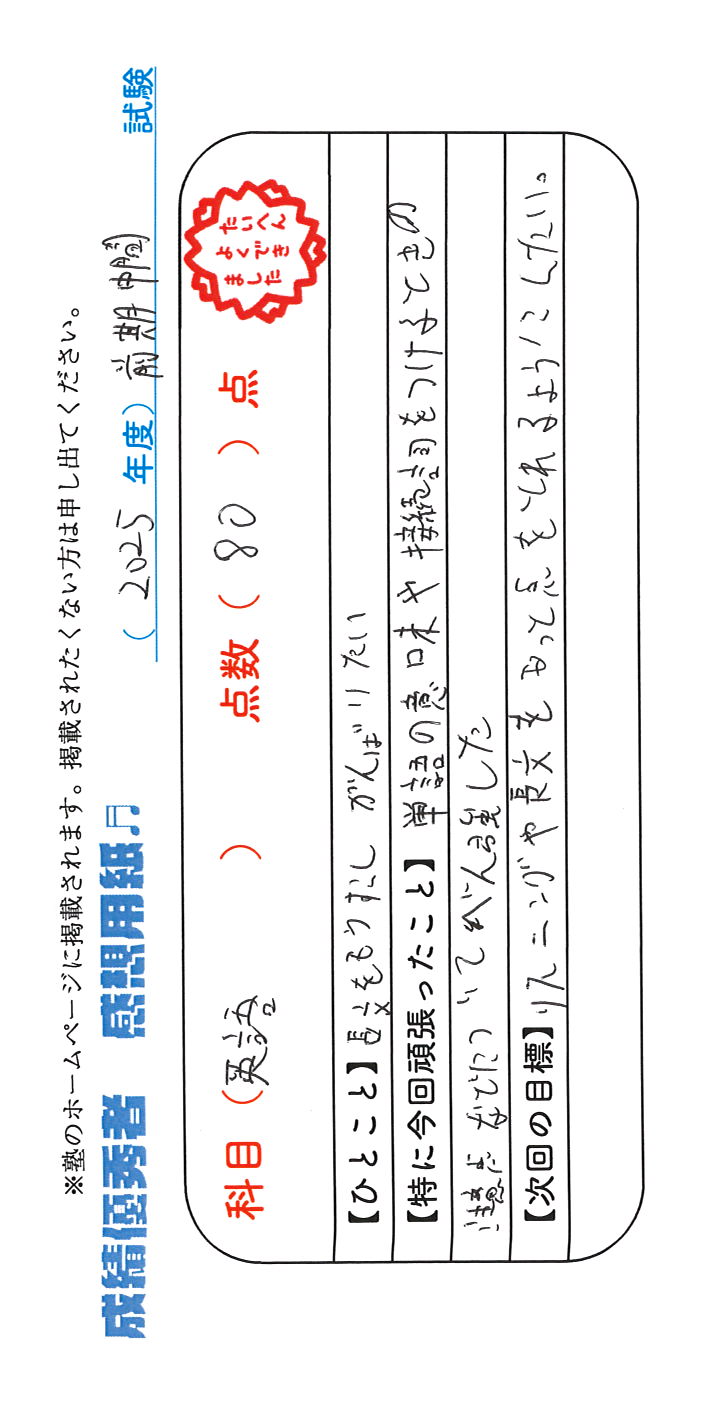 ※塾のホームページに掲載されます。掲載されたくない方は申し出てください。
成績優秀者 感想用紙♫ (2025 年度) 前期中間 試験
科目(英語) 点数(80)点
たいへん
よくでき
ました
【ひとこと】長文をもうすこしがんばりたい
【特に今回頑張ったこと】単語の意味や接続詞をつけるときの
注意点などについてがんばりました
【次回の目標】リスニングや長文をやって点をとれるようにしたい。